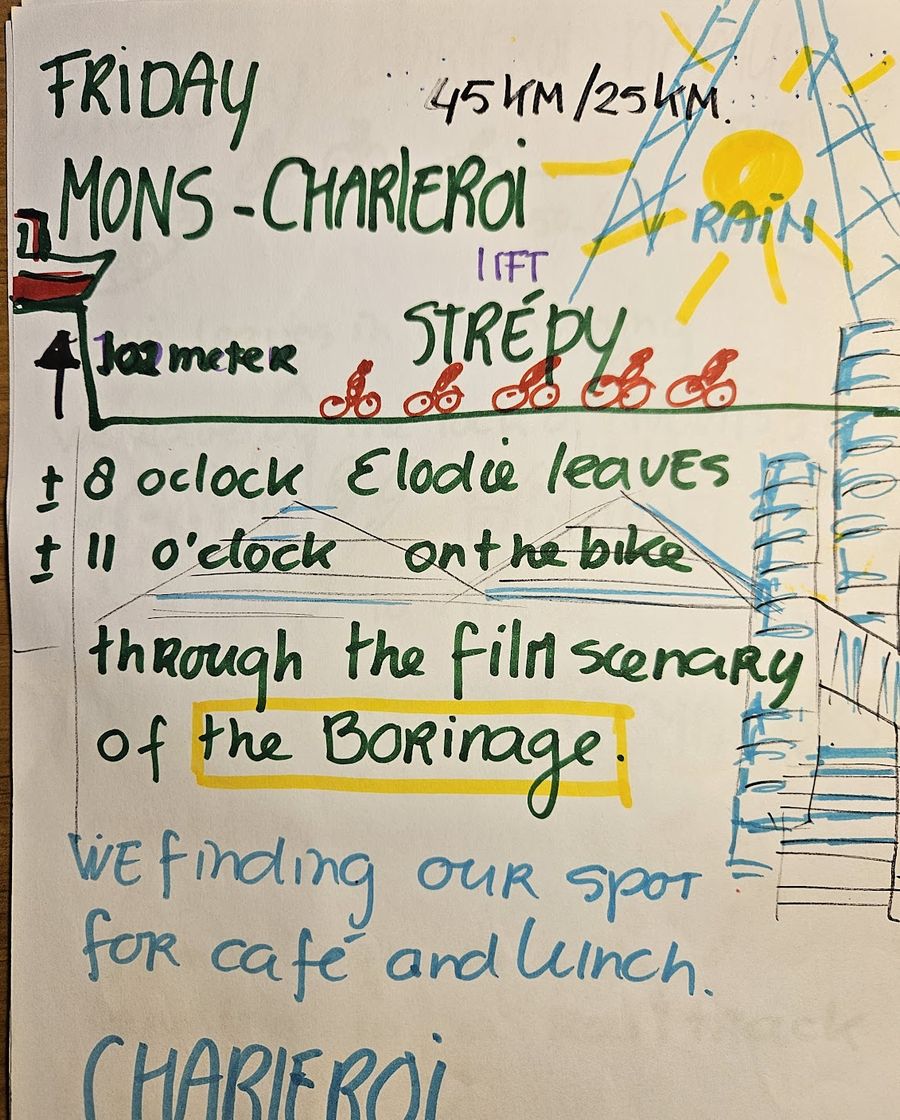 FRiDAY
45 KM/25 KM.
MONS - CHARlEROi
RAiN
lIFT
STRÉPY
102 meter
± 8 oclock Elodie leaves
± 11 o'clock on the bike
through the film scenary
of the Borinage.
WE finding our spot
for café and lunch.
CHARlEROi